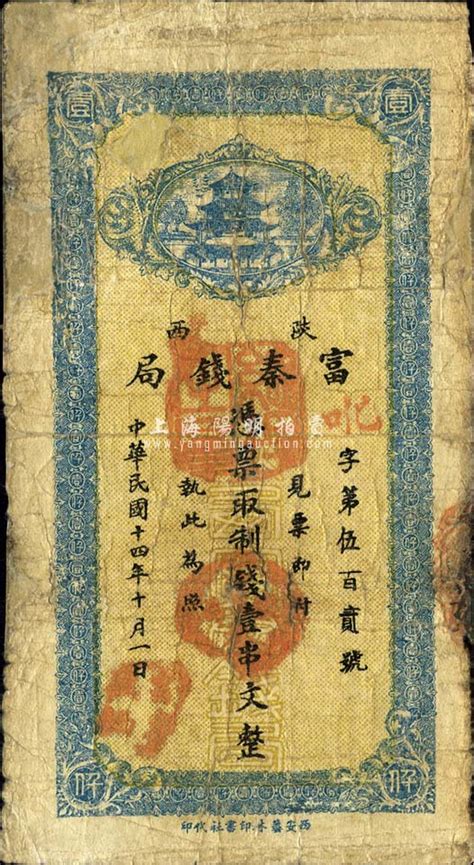 壹
壹
陕西
富秦錢局
字第伍百貳號
見票即付
憑票取制錢壹串文整
執此為照
中華民國十四年十月一日
上海陽明拍賣
www.yangmingauction.com
西安藝林印書社代印